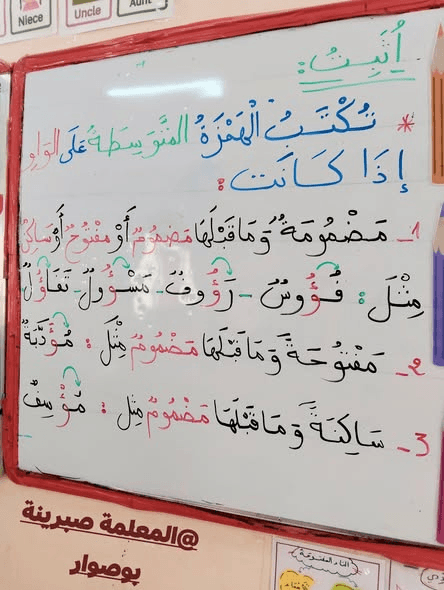 Niece
Uncle
Aunt
أُثَبِّتُ:
* تُكْتَبُ الْهَمْزَةُ الْمُتَوَسِّطَةُ عَلَى الوَاوِ
إِذَا كَانَت:
1- مَضْمُومَةً وَمَا قَبْلَهَا مَضْمُومٌ أَوْ مَفْتُوحٌ أَوْ سَاكِنٌ
مِثْلَ: فُؤُوسٌ - رَؤُوفٌ - مَسْؤُولٌ - تَفَاؤُلٌ
2- مَفْتُوحَةً وَمَا قَبْلَهَا مَضْمُومٌ مِثْلَ: مُؤَدَّبَةٌ
3- سَاكِنَةً وَمَا قَبْلَهَا مَضْمُومٌ مِثل: مُؤْسِفٌ
@المعلمة صبرينة
بوصوار